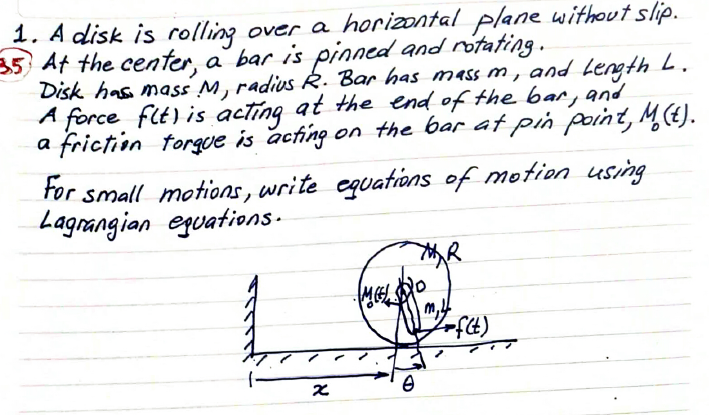 1. A disk is rolling over a horizontal plane without slip.
35 At the center, a bar is pinned and rotating.
Disk has mass M, radius R. Bar has mass m, and Length L.
A force f(t) is acting at the end of the bar, and
a friction torque is acting on the bar at pin point, M₀(t).
For small motions, write equations of motion using
Lagrangian equations.
M, R
M₀(t) O
m, L
f(t)
x θ